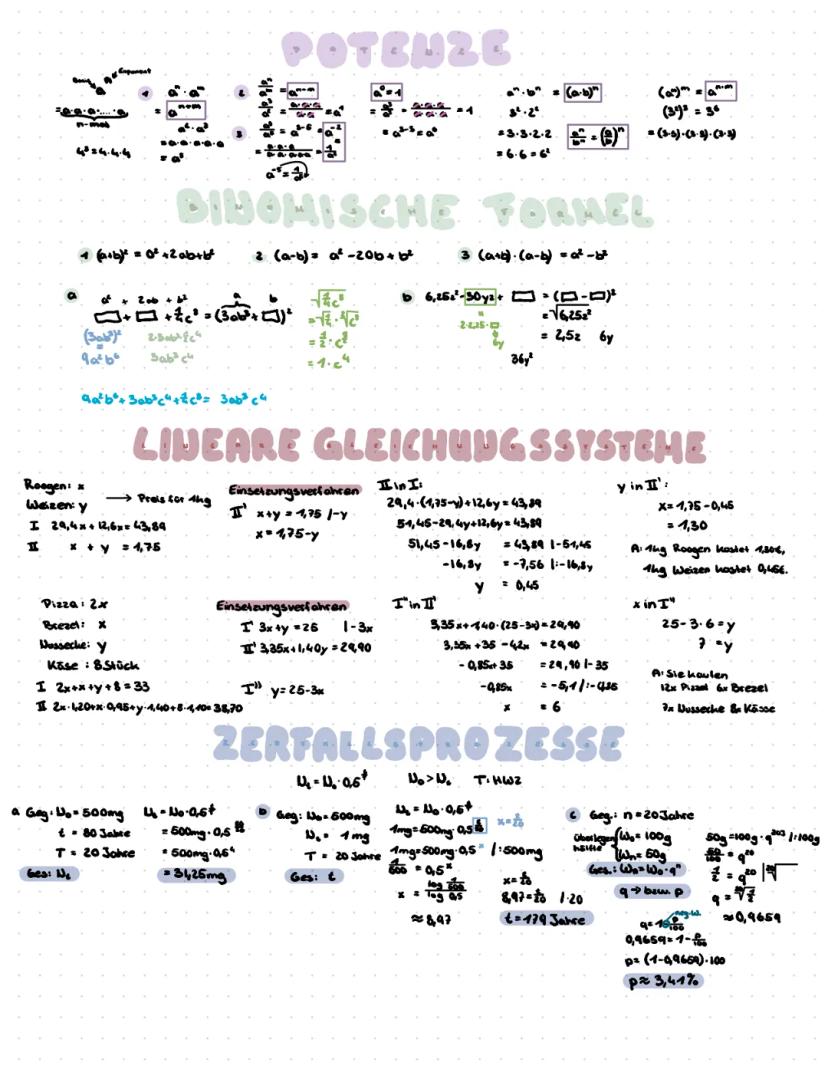 POTENZE
Basis a Exponent
= a·a·a·...·a
n-mal
4³ = 4·4·4
1 aⁿ · aᵐ
= aⁿ⁺ᵐ
a² · a³
= a·a·a·a·a
= a⁵
2 aⁿ/aᵐ = aⁿ⁻ᵐ
= a¹
3
a⁰ = 1
= 1
= a³⁻³ = a⁰
aⁿ · bⁿ = (a·b)ⁿ
3² · 2²
= 3·3·2·2
= 6·6 = 6²
aⁿ/bⁿ = (a/b)ⁿ
(3²)³ = 3⁶
= (3·3)·(3·3)·(3·3)
BINOMISCHE FORMEL
1 (a+b)² = a²+2ab+b²
2 (a-b) = a²-2ab+b²
3 (a+b)·(a-b) = a²-b²
a a² + 2ab + b² a b
□ + □ + ¼c⁸ = (3ab³+□)²
(3ab³)²
=
9a²b⁶
2·3ab³·½c⁴
3ab³c⁴
√¼c⁸
= ½·c
= 1·c⁴
9a²b⁶+3ab³c⁴+¼c⁸ = 3ab³c⁴
b 6,25z²-30yz+□ = (□-□)²
= √6,25z²
= 2,5z 6y
=
2·2,25·□
6y
36y²
LINEARE GLEICHUNGSSYSTEME
Roogen: x
Weizen: y → Preis für 1kg
I 29,4x+12,6x = 43,89
II x + y = 1,75
Einsetzungsverfahren
II' x+y = 1,75 /-y
x = 1,75-y
II in I:
29,4·(1,75-y)+12,6y = 43,89
51,45-29,4y+12,6y = 43,89
51,45-16,8y = 43,89 |-51,45
-16,8y = -7,56 |:-16,8y
y = 0,45
y in II':
x = 1,75-0,45
= 1,30
A: 1kg Roogen kostet 1,30€,
1kg Weizen kostet 0,45€.
Pizza: 2x
Brezel: x
Nussecke: y
Käse: 8 Stück
I 2x+x+y+8 = 33
II 2x·1,20+x·0,95+y·1,40+8·1,10 = 38,70
Einsetzungsverfahren
I' 3x+y = 25 |-3x
II' 3,35x+1,40y = 29,90
I'' y = 25-3x
I'' in II'
3,35x+1,40·(25-3x) = 29,90
3,35x+35-4,2x = 29,90
-0,85x+35 = 29,90 |-35
-0,85x = -5,1 /:-0,85
x = 6
x in I''
25-3·6 = y
7 = y
A: Sie kaufen
12x Pizzel 6x Brezel
7x Nussecke 8x Käse
ZERFALLSPROZESSE
N₀ > Nₜ T: HWZ
a Geg: N₀ = 500mg
t = 80 Jahre
T = 20 Jahre
Ges: Nₜ
= 500mg·0,5⁴
= 31,25mg
b Geg: N₀ = 500mg
Nₜ = 1mg
T = 20 Jahre
Ges: t
1mg = 500mg·0,5ˣ /:500mg
1/500 = 0,5ˣ
x = log 1/500 / log 0,5
≈ 8,97
x = t/20
8,97 = t/20 |·20
t = 179 Jahre
c Geg.: n = 20 Jahre
überlegen Hälfte
W₀ = 100g
Wn = 50g
Ges.: Wn = W₀·qⁿ
q → bzw. p
0,9659 = 1-p/100
p = (1-0,9659)·100
p ≈ 3,41%
50/100 = q²⁰
½ = q²⁰
q = ²⁰√½
≈ 0,9659